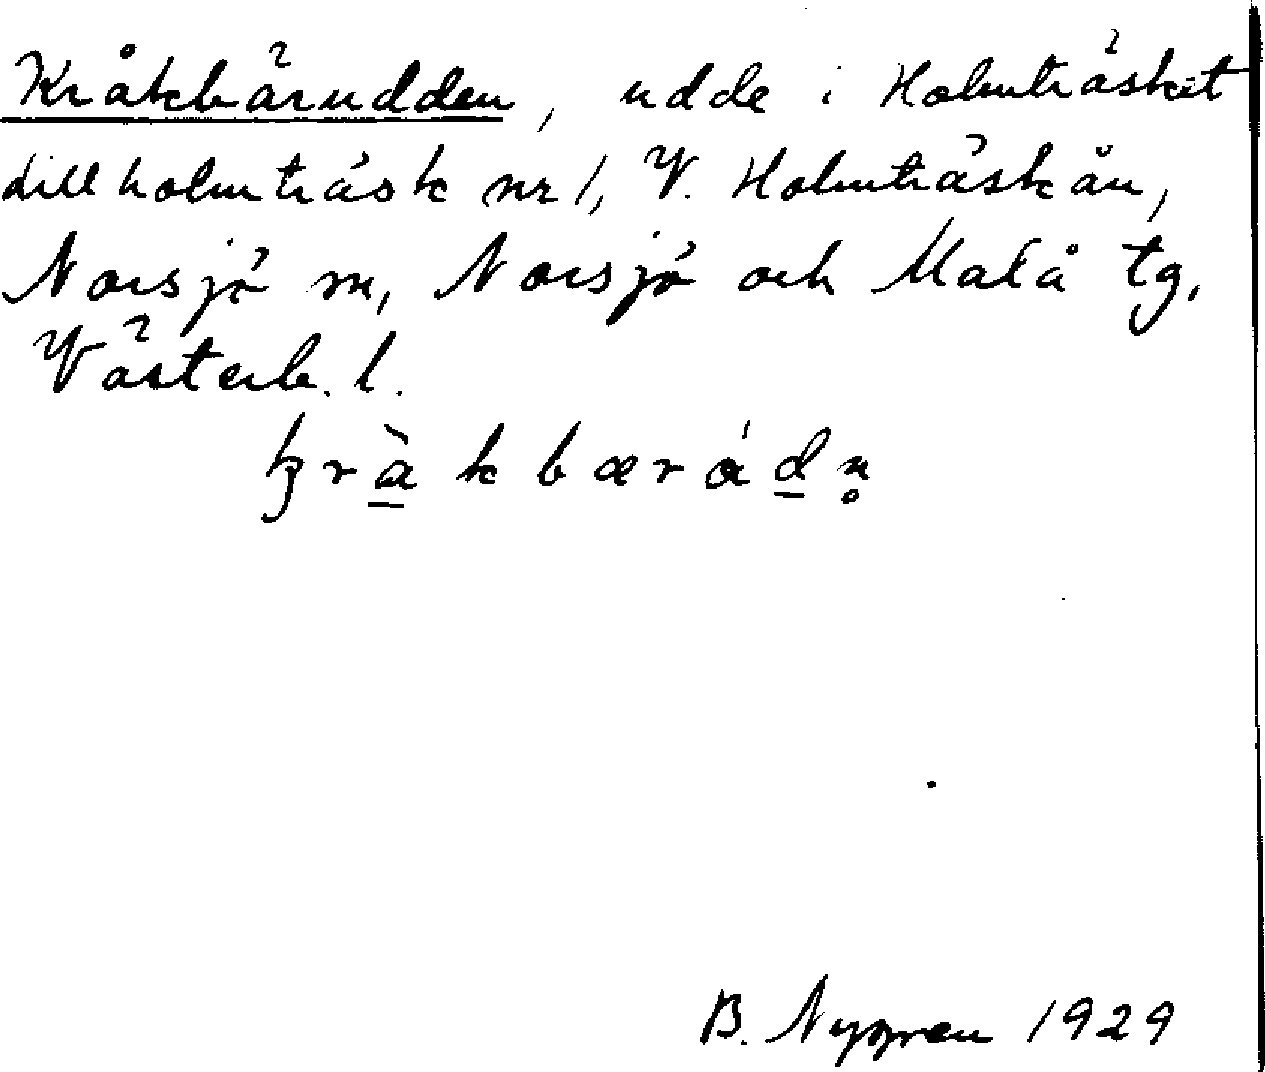 Kråkbärudden, udde i Holmträsket
Lillholmträsk nr 1, V. Holmträskån,
Norsjö sn, Norsjö och Malå tg,
Västerb. l.
B. Nygren 1929